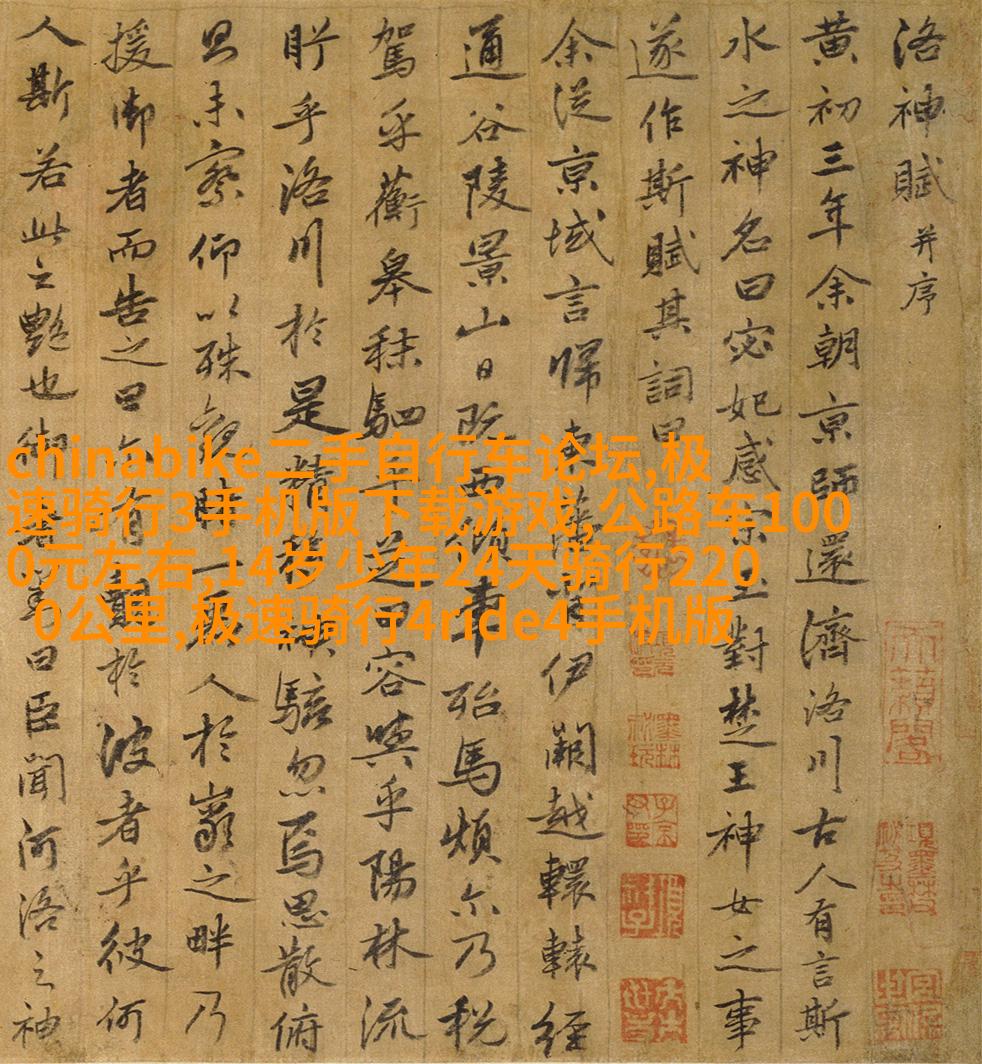 洛神賦并序
黄初三年余朝京師還濟洛川古人有言斯
水之神名曰宓妃感宋玉對楚王神女之事
遂作斯賦其詞曰
余從京域言歸東藩背伊闕越轘轅經
通谷陵景山日既西傾車殆馬煩尒乃税
駕乎蘅皋秣駟乎芝田容與乎陽林流
眄乎洛川於是精移神駭忽焉思散俯
則未察仰以殊觀睹一麗人於巖之畔乃
援御者而告之曰尒有覿於彼者乎彼何
人斯若此之艷也御者對曰臣聞河洛之神
chinabike二手自行车论坛,极
速骑行3手机版下载游戏,公路车100
0元左右,14岁少年24天骑行220
0公里,极速骑行4ride4手机版